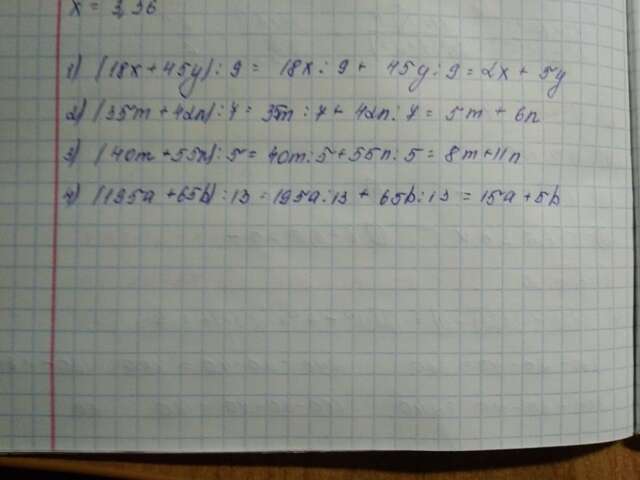 x = 3,36
1) (18x + 45y) : 9 = 18x : 9 + 45y : 9 = 2x + 5y
2) (35m + 42n) : 7 = 35m : 7 + 42n : 7 = 5m + 6n
3) (40m + 55n) : 5 = 40m : 5 + 55n : 5 = 8m + 11n
4) (195a + 65b) : 13 = 195a : 13 + 65b : 13 = 15a + 5b